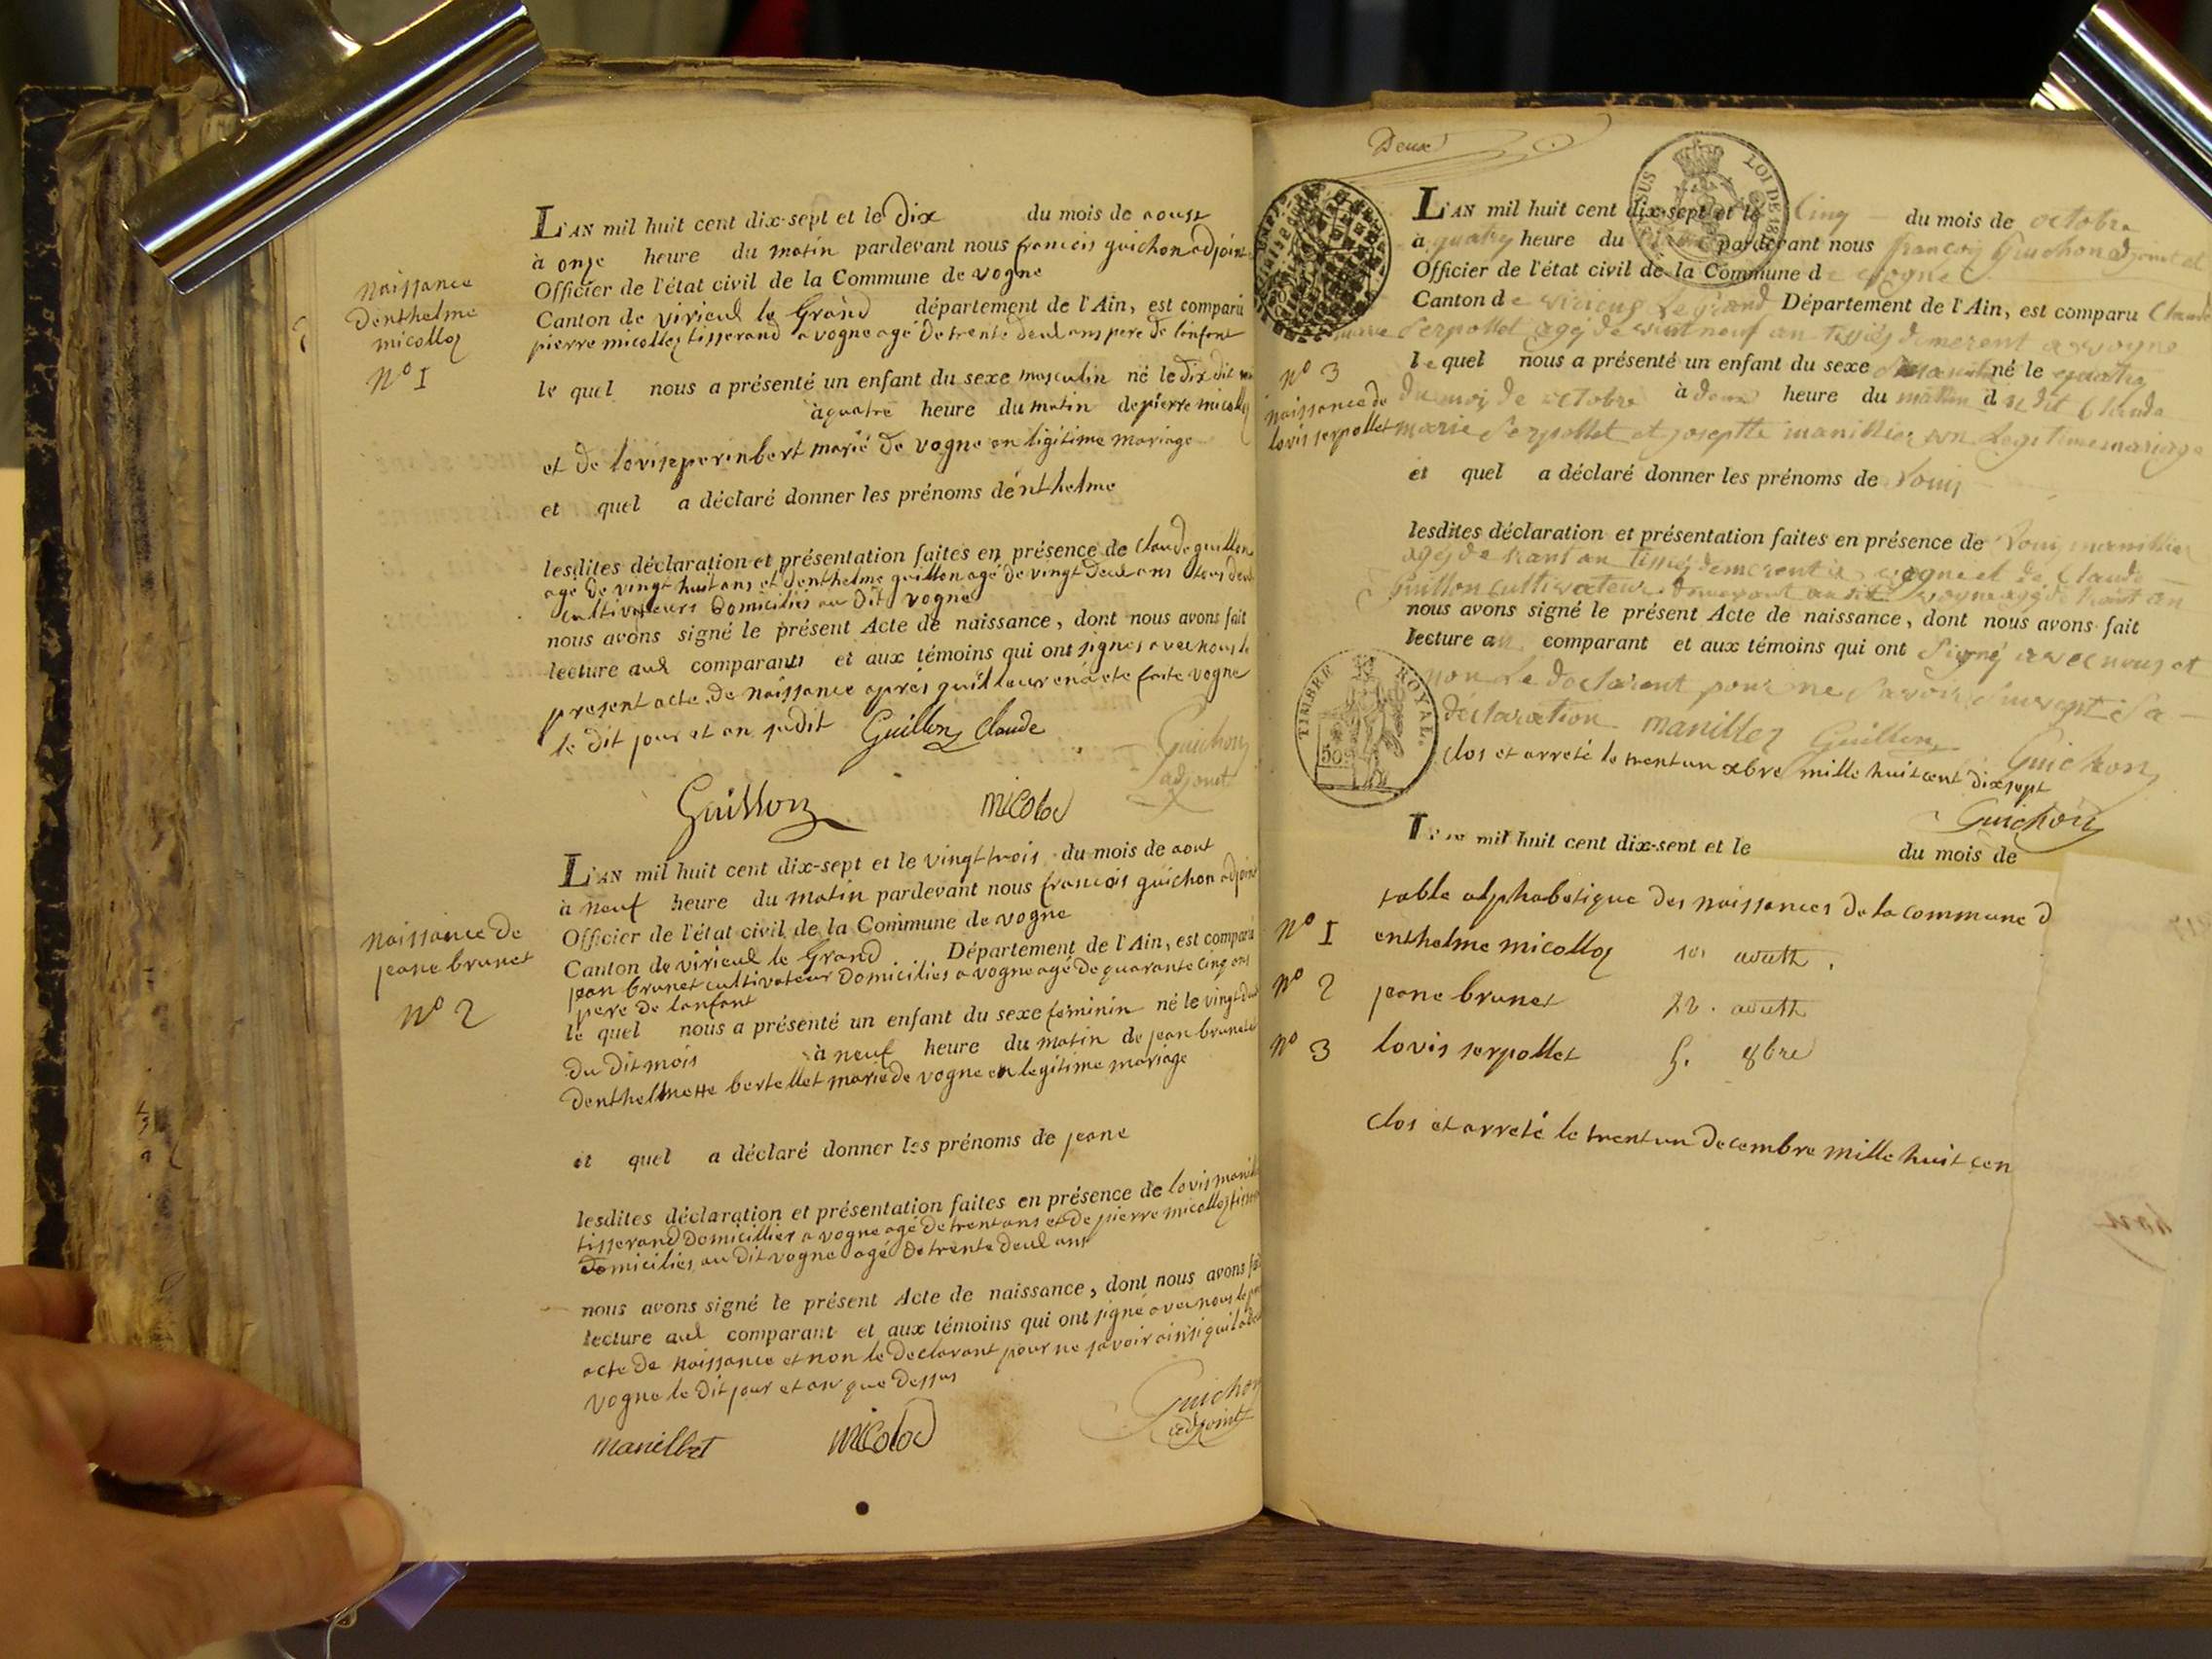 naissance
denthelme
micolloz
n° 1
L'AN mil huit cent dix-sept et le dix du mois de aoust
à onze heure du matin pardevant nous francois guichon adjoint
Officier de l'état civil de la Commune de vogne
Canton de virieul le Grand département de l'Ain, est comparu
pierre micolloz tisserand a vogne agé de trente deul ans pere de lenfant
le quel nous a présenté un enfant du sexe masculin né le dix dit
à quatre heure du matin de pierre micolloz
et de lovise perinbert marié de vogne en ligitime mariage
et quel a déclaré donner les prénoms dénthelme
lesdites déclaration et présentation faites en présence de Claude guillon
agé de vingt huit ans et denthelme guillon agé de vingt deul ans tous deul
cultivateurs domiciliés au dit vogne
nous avons signé le présent Acte de naissance, dont nous avons fait
lecture aul comparants et aux témoins qui ont signes avec nous le
present acte de naissance apres quil leur en a ete faite vogne
le dit jour et an sudit Guillon Claude
Guichon
adjoint
Guillon micolod
naissance de
jeane brunet
n° 2
L'AN mil huit cent dix-sept et le vingt trois du mois de aout
à neuf heure du matin pardevant nous francois guichon adjoint
Officier de l'état civil de la Commune de vogne
Canton de virieul le Grand Département de l'Ain, est comparu
jean brunet cultivateur domiciliés a vogne agé de quarante cinq ans
pere de lanfant
le quel nous a présenté un enfant du sexe feminin né le vingt deul
du dit mois à neuf heure du matin de jean brunet et
denthelmette bertellet marie de vogne en legitime mariage
et quel a déclaré donner les prénoms de jeane
lesdites déclaration et présentation faites en présence de lovis
tisserand domicillier a vogne agé de trent ans et de pierre micolloz
domiciliés au dit vogne agé de trente deul ans
nous avons signé le présent Acte de naissance, dont nous avons fait
lecture aul comparant et aux témoins qui ont signé avec nous le
acte de naissance et non le declarant pour ne savoir ainsi quil a
vogne le dit jour et an que dessus
manillet micolod
Guichon
adjoint
Deux
LOI DE
L'AN mil huit cent dix-sept et le Cinq du mois de octobre
à quatre heure du pardevant nous françois Guichon adjoint et
Officier de l'état civil de la Commune de vogne
Canton de virieux Le grand Département de l'Ain, est comparu Claude
marie Serpollet agé de vint neuf an demerent a vogne
n° 3
naissance de
lovis serpollet
le quel nous a présenté un enfant du sexe né le quatre
du moi de octobre à deux heure du mattin du dit Claude
marie Serpollet et josepthe manillier en Legitime mariage
et quel a déclaré donner les prénoms de Louis
lesdites déclaration et présentation faites en présence de Louis manillier
agé de trant an demerent a vogne et de Claude
Guillon Cultivateur demeurant au dit vogne agé de an
nous avons signé le présent Acte de naissance, dont nous avons fait
lecture au comparant et aux témoins qui ont Signé avec nous et
non Le declarent pour ne Savoir Suivent Sa
déclaration manillez Guillon Guichon
TIMBRE ROYAL.
50
clos et arreté le trent un xbre mille huit cent dixsept
Guichon
L'AN mil huit cent dix-sept et le du mois de
table alphabetique des naissances de la commune d
n° 1 enthelme micolloz 10. aoutt.
n° 2 jeane brunet 22. aoutt
n° 3 lovis serpollet 5. 8bre
clos et arreté le trent un decembre mille huit cen